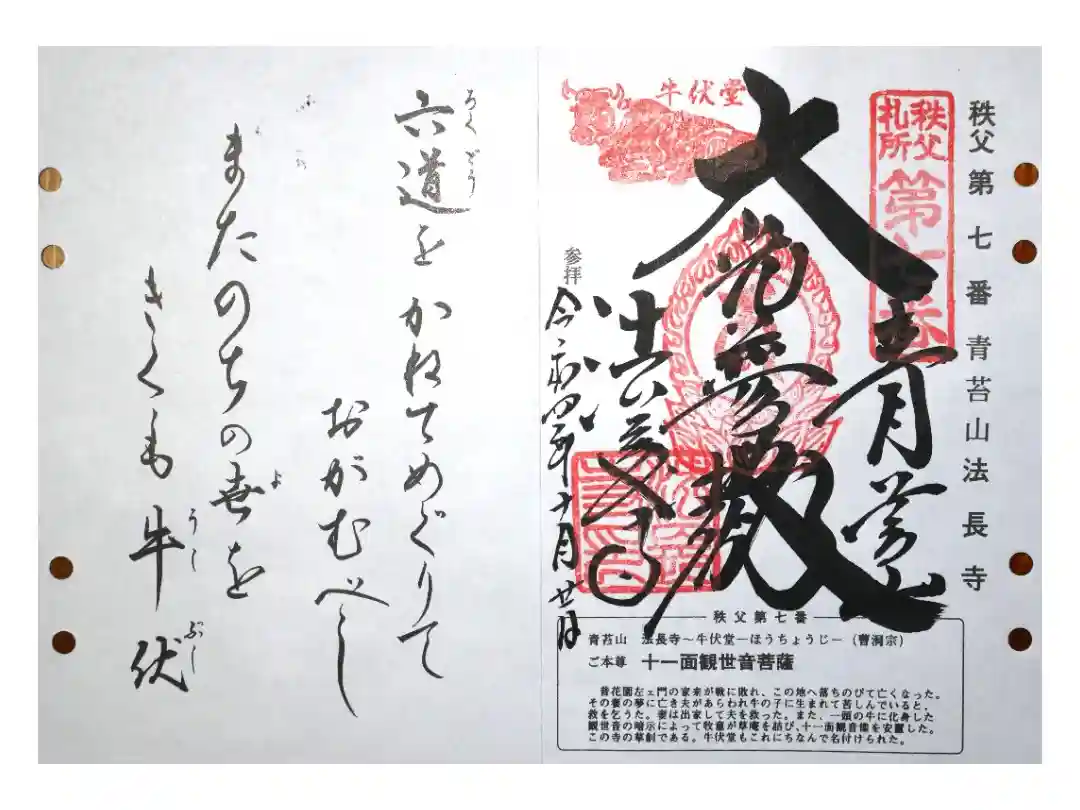 秩父第七番 青苔山法長寺
秩父
札所
第七番
牛伏堂
大
青苔山
参拝
令和四年十月廿日
六道を かねてめぐりて
おがむべし
またのちの世を
きくも牛伏
ろくどう
よ
うし
ぶし
秩父第七番
青苔山 法長寺〜牛伏堂―ほうちょうじ―(曹洞宗)
ご本尊 十一面観世音菩薩
昔花園左ェ門の家来が戦に敗れ、この地へ落ちのびて亡くなった。
その妻の夢に亡き夫があらわれ牛の子に生まれて苦しんでいると、
救を乞うた。妻は出家して夫を救った。また、一頭の牛に化身した
観世音の暗示によって牧童が草庵を詰び、十一面観音像を安置した。
この寺の草創である。牛伏堂もこれにちなんで名付けられた。